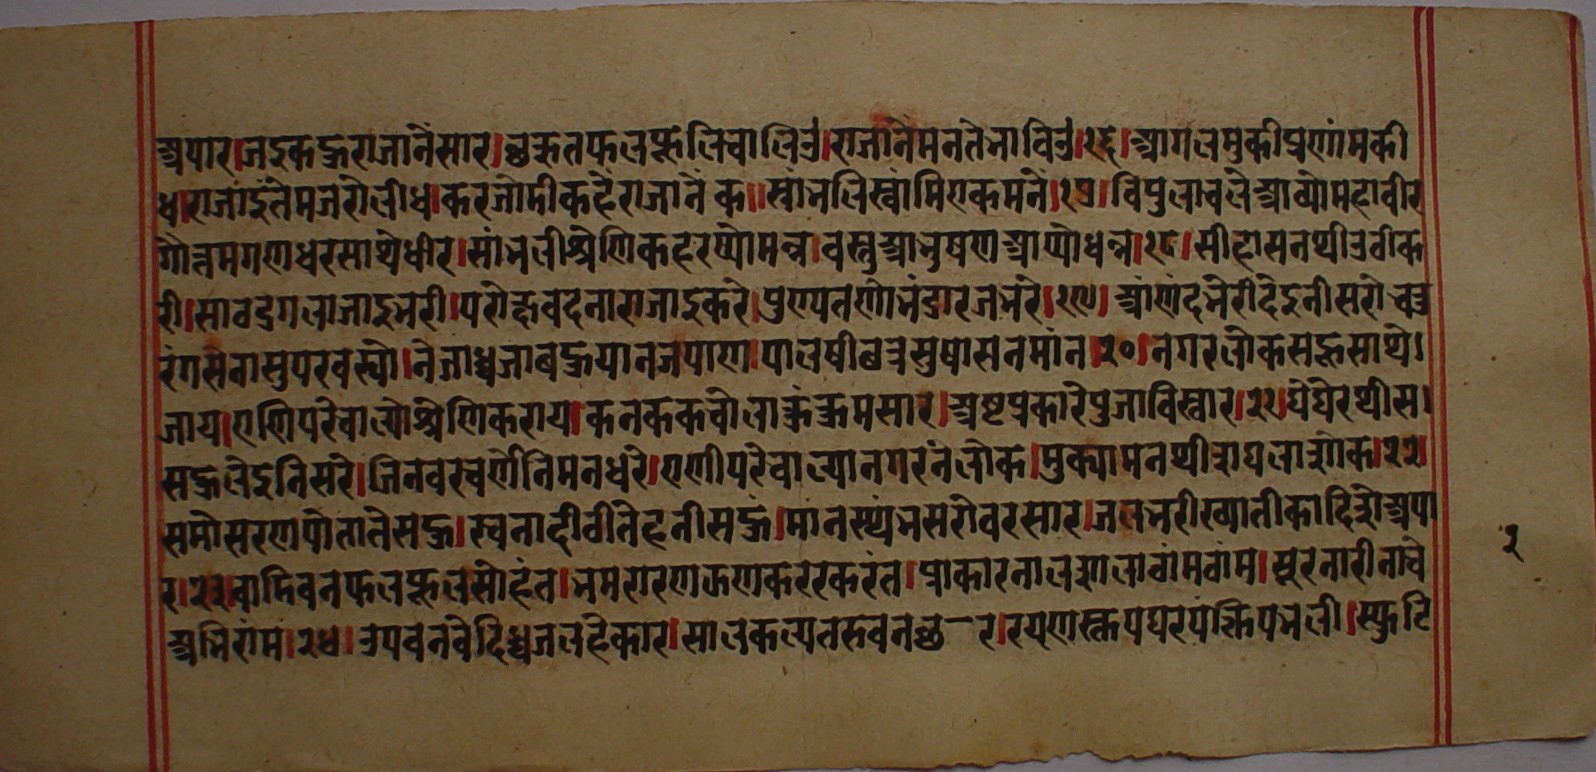 अपार।जइकह्रुराजानेसार।छरुतफलफूलेलिवालिउ।राजानेमनतेभाविउ।१६।आगलमुकीप्रणांमकी
ध।राजाइंतेमजरोलीध।करजोमीकहेराजाने क॥सांभलिस्वांमिएकमने।१७।विपुलाचलेआव्योमहावीर
गौत्तमगणधरसाथेधीर।सांभलीश्रेणिकहरष्योमन्न।वस्त्रआभुषणआप्योधन्न।१८।सीहासनथीउठीक
री।सातडगलाजाइभरी।परोक्षवंदनाराजाइकरे।पुण्यतणोभंडारजभरे।१९।आंणंदभेरीदेइनीसरोचतु
रंगसेनासुपरवस्यो।नेजाध्वजाबहुयानजपाण।पालषीछत्रसुषासनमांन।२०।नगरलोकसहुसाथे।
जाय।राणिपरेवाल्योश्रेणिकराय।कनककचोलाकुंकुमसार।अष्टप्रकारेपुजाविस्तार।२१।घेघेरथीस।
सहुलेइनिसरे।जिनवरचरणेनिमनधरे।राणीपरेवाल्यानगरनंलोक।मुक्यामनथीआघलाशोक।२२।
समोसरणपोतातेसहु।रचनादीठीतेहनीसहुं।मांनस्थंभसरोवरसार।जलभरीखातीकादिशेअपा
र।२३।वाडिवनफलफूलसोहंत।भमरारणऊणकरेरकरंत।प्राकारनालशालाठांमठांम।सूरनारीनाचे
अभिरांम।२४।उपवनवेदिध्वजलहेकार।सालकल्पतरुवनछ-र।रयणस्तूपघरपंक्तिपभली।स्फुटि
२